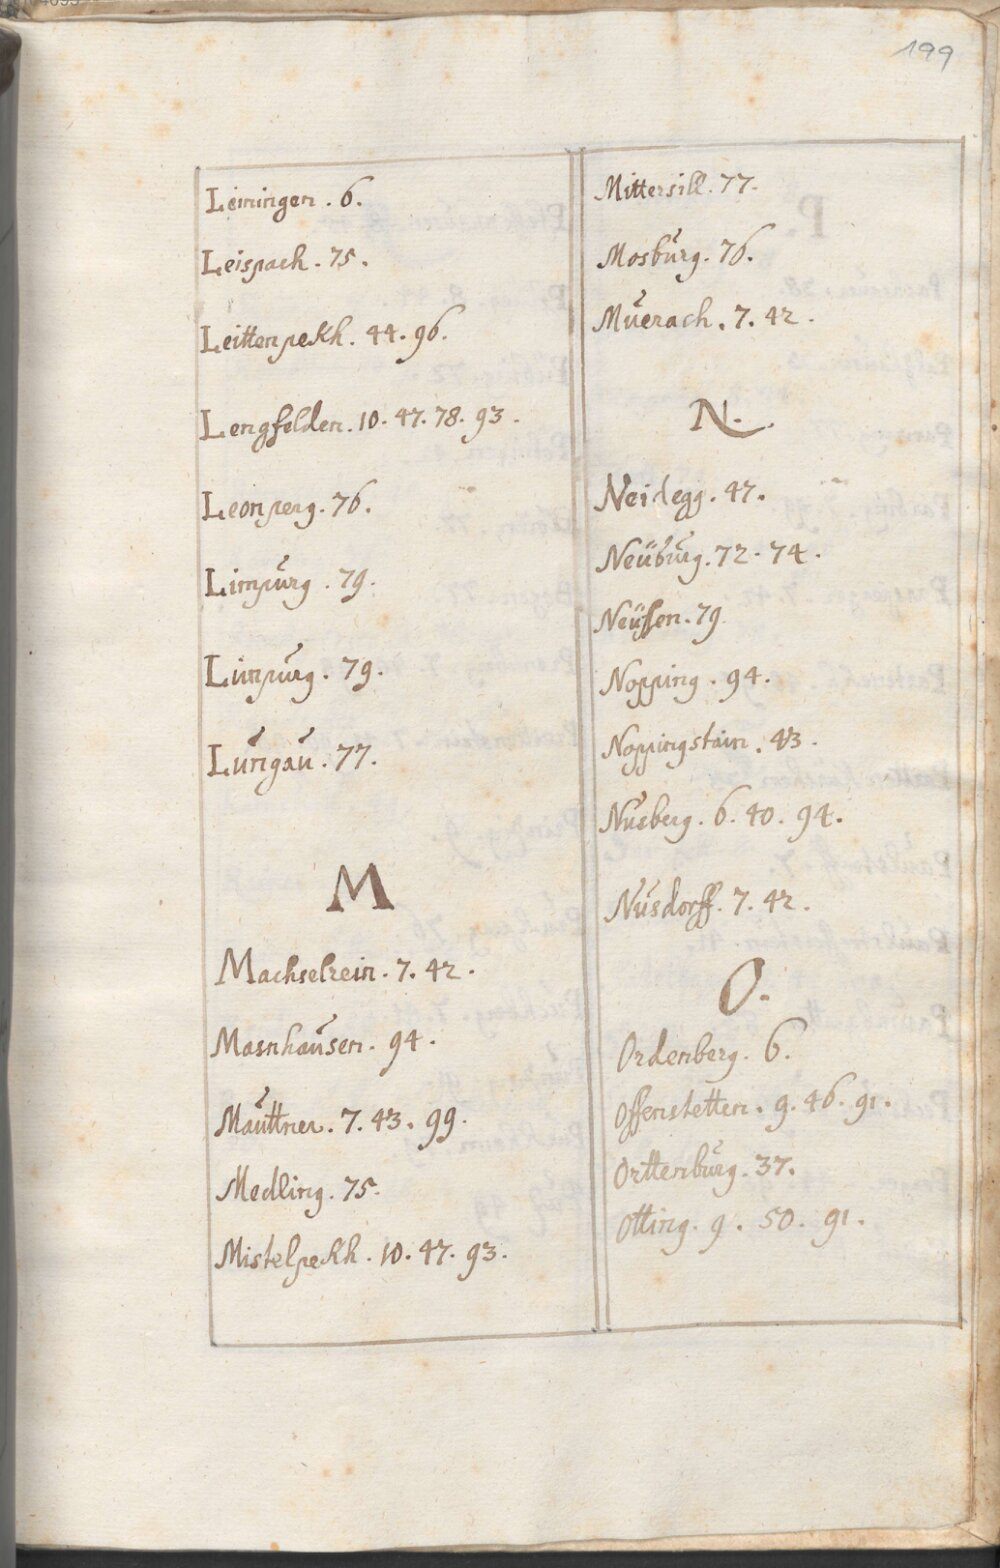 199
Leiningen . 6.
Leispach . 75.
Leittenpekh. 44. 96.
Lengfelden. 10. 47. 78. 93.
Leonperg. 76.
Limpürg . 79.
Limpürg . 79.
Lüngaü . 77.
M
Machselrein. 7. 42.
Masnhaüsen. 94.
Maüttner. 7. 43. 99.
Medling. 75.
Mistelpekh. 10. 47. 93.
Mittersill. 77.
Mosbürg. 76.
Müerach. 7. 42.
N.
Neidegg. 47.
Neübürg. 72. 74.
Neüfen. 79
Nopping. 94.
Noppingstain. 43.
Nüsberg. 6. 40. 94.
Nüsdorff. 7. 42.
O.
Ordenberg. 6.
Offenstetten. 9. 46. 91.
Orttenbürg. 37.
Otting. 9. 50. 91.